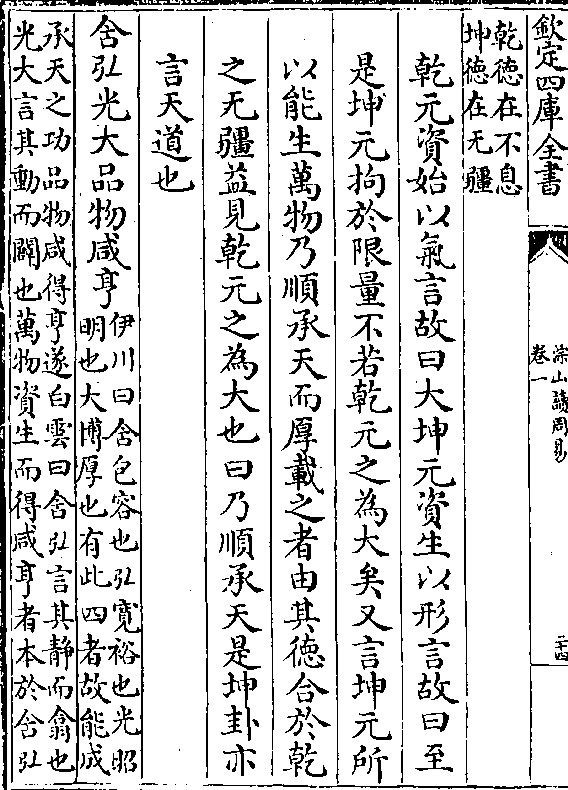 欽定四庫全書
涂山讀周易
卷一
二十四
乾德在不息
坤德在无疆
乾元資始以氣言故曰大坤元資生以形言故曰至
是坤元拘於限量不若乾元之為大矣又言坤元所
以能生萬物乃順承天而厚載之者由其德合於乾
之无疆益見乾元之為大也曰乃順承天是坤卦亦
言天道也
含弘光大品物咸亨
伊川曰含包容也弘寛裕也光昭
明也大博厚也有此四者故能成
承天之功品物咸得亨遂白雲曰含弘言其靜而翕也
光大言其動而闢也萬物資生而得咸亨者本於含弘